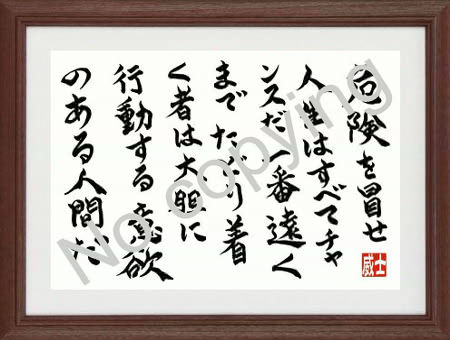 危険を冒せ
人生はすべてチャ
ンスだ一番遠く
までたどり着
く者は大胆に
行動する意欲
のある人間だ
威士
No copying